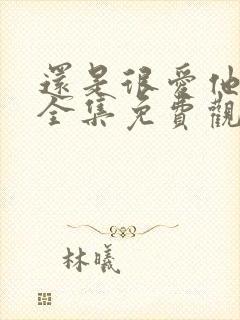 還是很愛他
全集免費觀
林曦